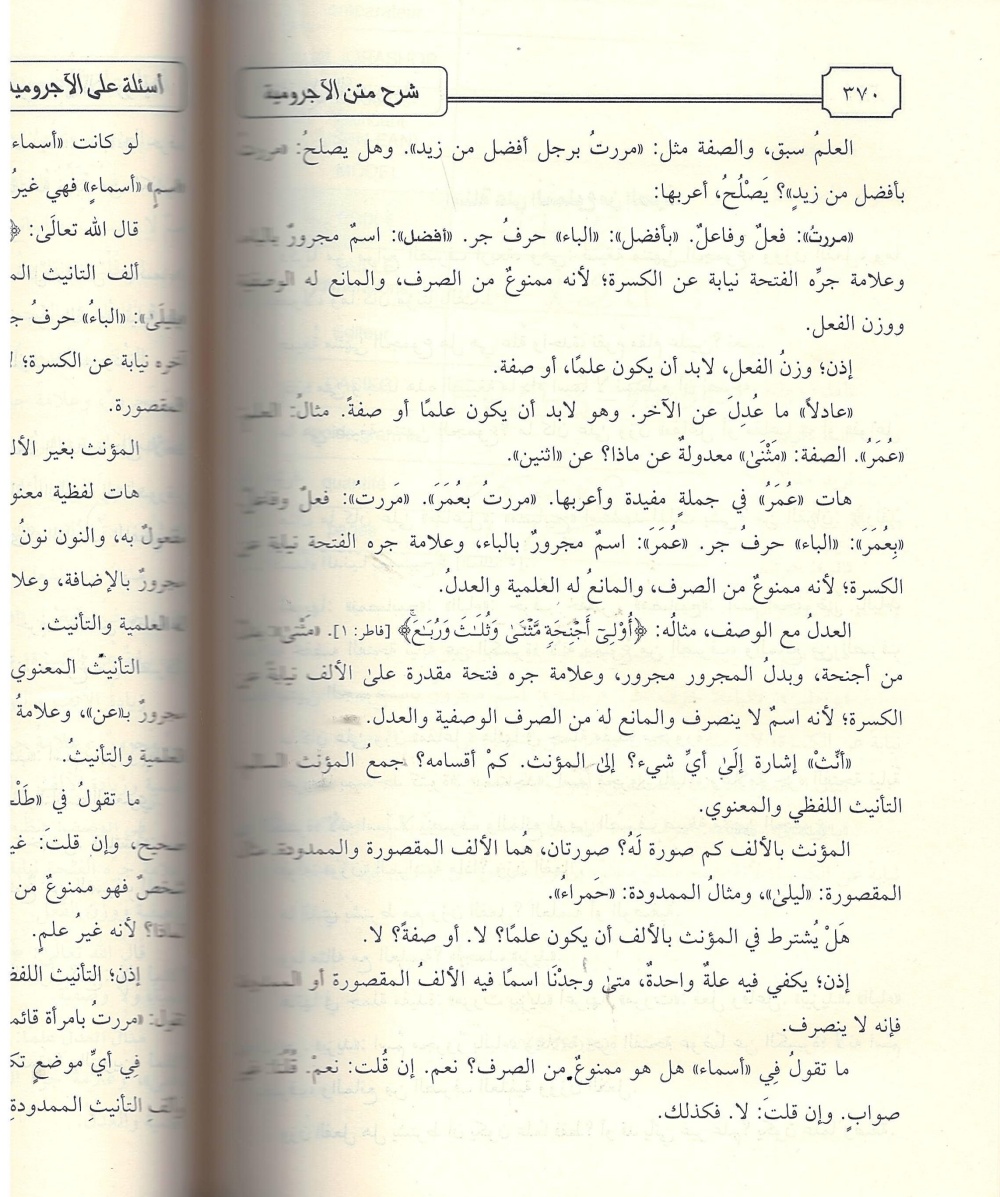 ٣٧٠
شرح متن الآجرومية
العلمُ سبق، والصفة مثل: «مررتُ برجل أفضل من زيد». وهل يصلحُ: «مررت
بأفضل من زيدٍ»؟ يَصْلُحُ، أعربها:
«مررتُ»: فعلٌ وفاعلٌ. «بأفضل»: «الباء» حرفُ جر. «أفضل»: اسمٌ مجرورٌ بالباء
وعلامة جرِّه الفتحة نيابة عن الكسرة؛ لأنه ممنوعٌ من الصرف، والمانع له الوصفية
ووزن الفعل.
إذن؛ وزنُ الفعل، لابد أن يكون علمًا، أو صفة.
«عادلاً» ما عُدِلَ عن الآخر. وهو لابد أن يكون علمًا أو صفةً. مثالُ: العلم
«عُمَرُ». الصفة: «مَثْنَىٰ» معدولةٌ عن ماذا؟ عن «اثنين».
هات «عُمَرُ» في جملةٍ مفيدة وأعربها. «مررتُ بعُمَرَ». «مَررتُ»: فعلٌ وفاعلٌ
«بِعُمَرَ»: «الباء» حرفُ جر. «عُمَرَ»: اسمٌ مجرورٌ بالباء، وعلامة جره الفتحة نيابة عن
الكسرة؛ لأنه ممنوعٌ من الصرف، والمانعُ له العلمية والعدلُ.
العدلُ مع الوصف، مثالُه: ﴿أُوْلِىٓ أَجْنِحَةٍ مَّثْنَىٰ وَثُلَـٰثَ وَرُبَـٰعَۚ﴾ [فاطر: ١]. «مَثْنَىٰ»:
من أجنحة، وبدلُ المجرور مجرور، وعلامة جره فتحة مقدرة علىٰ الألف نيابةً عن
الكسرة؛ لأنه اسمٌ لا ينصرف والمانع له من الصرف الوصفية والعدل.
«أنِّثْ» إشارة إلَىٰ أيِّ شيء؟ إلىٰ المؤنث. كمْ أقسامه؟ جمعُ المؤنث السالم
التأنيث اللفظي والمعنوي.
المؤنث بالألف كم صورة لَهُ؟ صورتان، هُما الألف المقصورة والممدودة. مثال
المقصورة: «ليلىٰ»، ومثالُ الممدودة: «حَمراءُ».
هَلْ يُشترط في المؤنث بالألف أن يكون علمًا؟ لا. أو صفةً؟ لا.
إذن؛ يكفي فيه علةٌ واحدةٌ، متىٰ وجدْنَا اسمًا فيه الألفُ المقصورة أو الممدودة
فإنه لا ينصرف.
ما تقولُ فِي «أسماء» هل هو ممنوعٌ من الصرف؟ نعم. إن قُلت: نعمْ. قُلْنَا: غير
صوابٍ. وإن قلتَ: لا. فكذلك.
أسئلة على الآجرومية
لو كانت «أسماء
«أسماءٍ» فهي غيرُ
قال الله تعالَىٰ: ﴿
ألف التانيث
«الباءُ» حرفُ
نيابة عن الكسرة؛
المقصورة.
المؤنث بغير
هات لفظية
به، والنون نونُ
مجرورٌ بالإضافة،
العلمية والتأنيث.
التأنيثُ المعنوي
مجرورٌ بـ«عن»، وعلامةُ
العلمية والتأنيثُ.
ما تقولُ في
صحيح، وإن قلتَ:
شخصٌ فهو ممنوعٌ من
لماذا؟ لأنه غيرُ علمٍ.
إذن؛ التأنيث
تقول: «مررتُ بامرأة
فِي أيِّ موضعٍ
التأنيثِ الممدودةِ